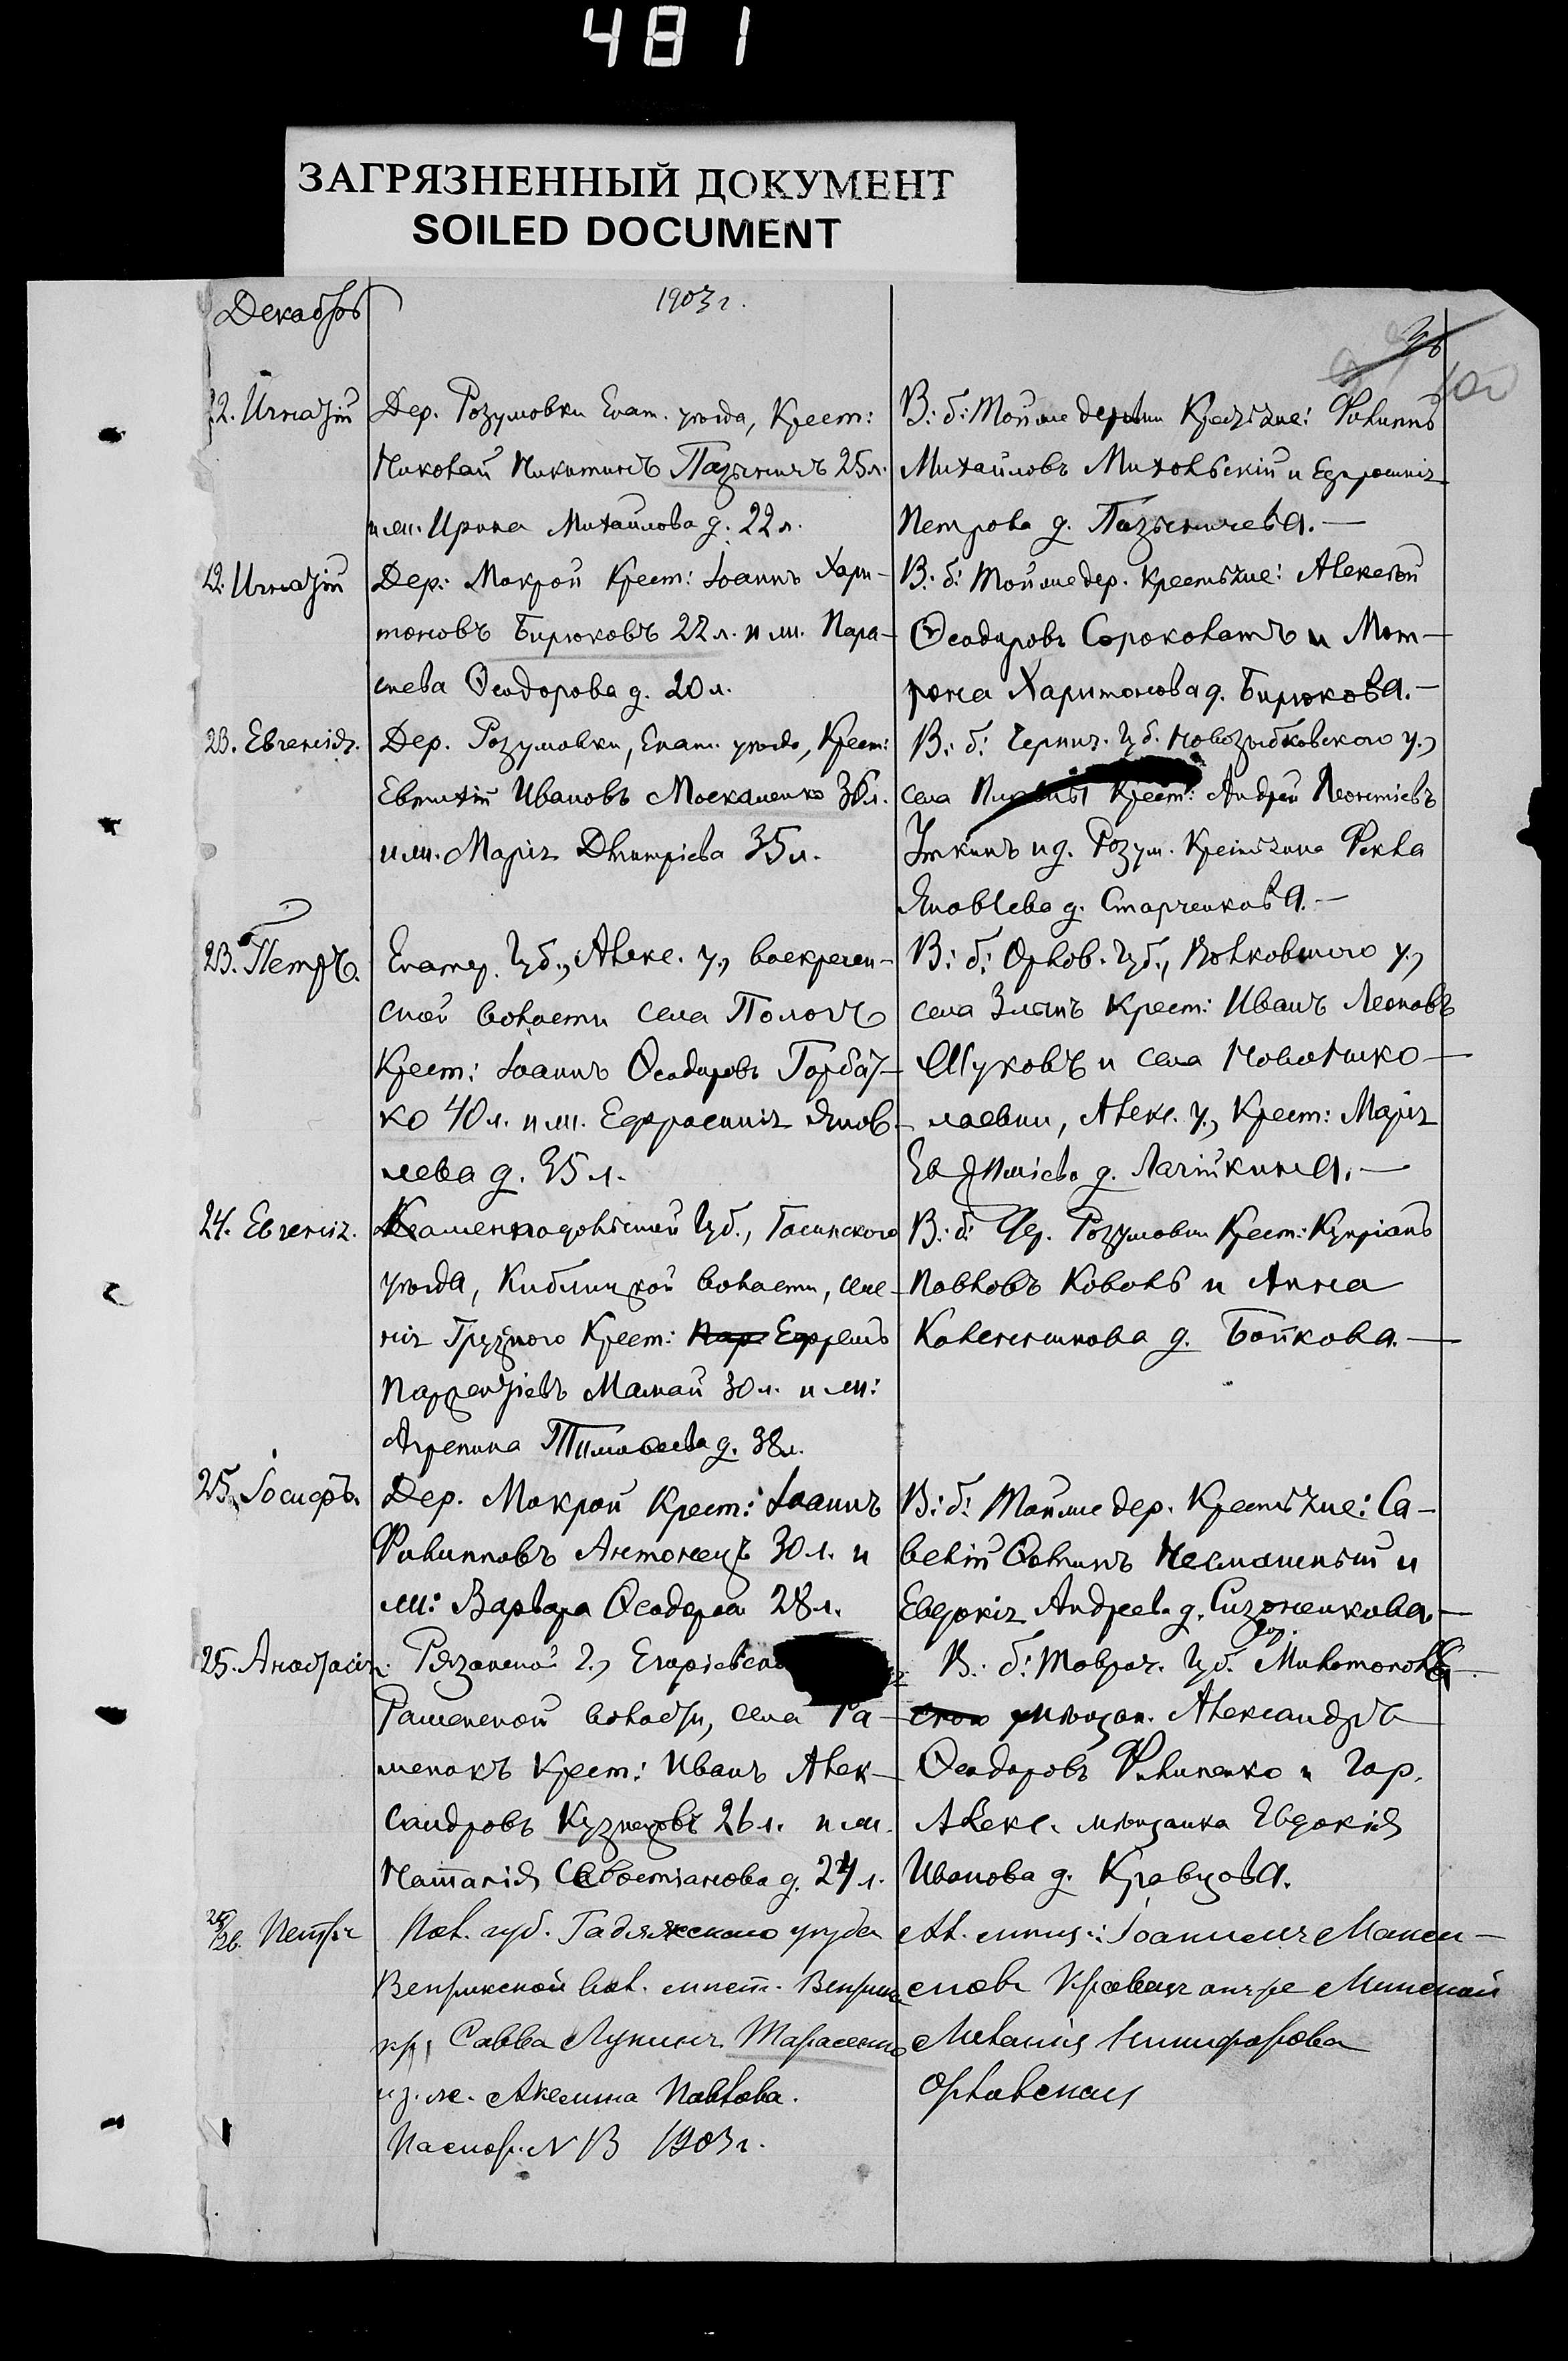 481
ЗАГРЯЗНЕННЫЙ ДОКУМЕНТ
SOILED DOCUMENT
Декабрь
1903 г.
22. Игнатій
Дер. Розумовки Екат. уѣзда, Крест:
Николай Никитинъ Пазыничъ 25 л.
и ж. Ирина Михайлова д. 22 л.
В. б: Той же деревни Крестьяне: Филиппъ
Михайловъ Михольскій и Ефросинія
Петрова д. Пазыничева. —
22. Игнатій
Дер: Мокрой Крест: Іоаннъ Хари-
тоновъ Бирюковъ 22 л. и ж. Пара-
скева Ѳеодорова д. 20 л.
В. б: Той же дер. Крестьяне: Алексѣй
Ѳеодоровъ Сороколатъ и Мот-
рона Харитонова д. Бирюкова. —
23. Евгенія.
Дер. Розумовки, Екат. уѣзда, Крест:
Евтихій Ивановъ Москаленко 36 л.
и ж. Марія Дмитріева 35 л.
В. б: Черниг. Губ. Новозыбковскаго у.,
села Крест: Андрей Леонтіевъ
Уткинъ и д. Розум. Крестьянка Фекла
Яковлева д. Старченкова. —
23. Петръ.
Екатер. Губ., Алекс. у., воскресен-
ской волости села Пологъ
Крест: Іоаннъ Ѳеодоровъ Горбат-
ко 40 л. и ж. Ефросинія Яков-
лева д. 35 л.
В. б: Орлов. Губ., Волховскаго у.,
села Злынъ Крест: Иванъ Леоновъ
Жуковъ и села Новонико-
лаевки, Алекс. у., Крест: Марія
д. Лагішкина. —
24. Евгенія.
Каменецподольской Губ., Гасинского
уѣзда, Киблицкой волости, селе-
нія Грузного Крест: Ефремъ
Парфентіевъ Мамай 30 л. и ж:
Агрепина Тимоѳеева д. 38 л.
В. б: Дер. Розумовки Крест: Купріанъ
Павловъ Коваль и Анна
д. Бойкова. —
25. Іосифъ.
Дер. Мокрой Крест: Іоаннъ
Филипповъ Антонецъ 30 л. и
ж: Варвара Ѳеодорова 28 л.
В: б: Той же дер. Крестьяне: Са-
велій и
Евдокія Андреева д. Сизоненкова —
25. Анастасія.
Рязанской г., Егорьевск
Раменской волости, села Ра-
менокъ Крест: Иванъ Алек-
сандровъ Кузнецовъ 26 л. и ж.
Наталія Савостіанова д. 24 л.
В. б: Таврич. Губ. Милитополь
мѣщан. Александръ
Ѳеодоровъ Филипенко и гор.
Алекс. мѣщанка Евдокія
Иванова д. Кравцова.
26. Петръ
Пол. губ. Гадяжскаго уѣзда
Веприкской вол. мѣст. Веприка
кр. Савва Лукинъ Тарасенко
из. ж. Акелина Павлова.
Паспор. N 13 1903 г.
Ал. мѣщ.: Іоанникъ Макси-
мовъ Кравецъ
Меланія Никифорова
Орловская